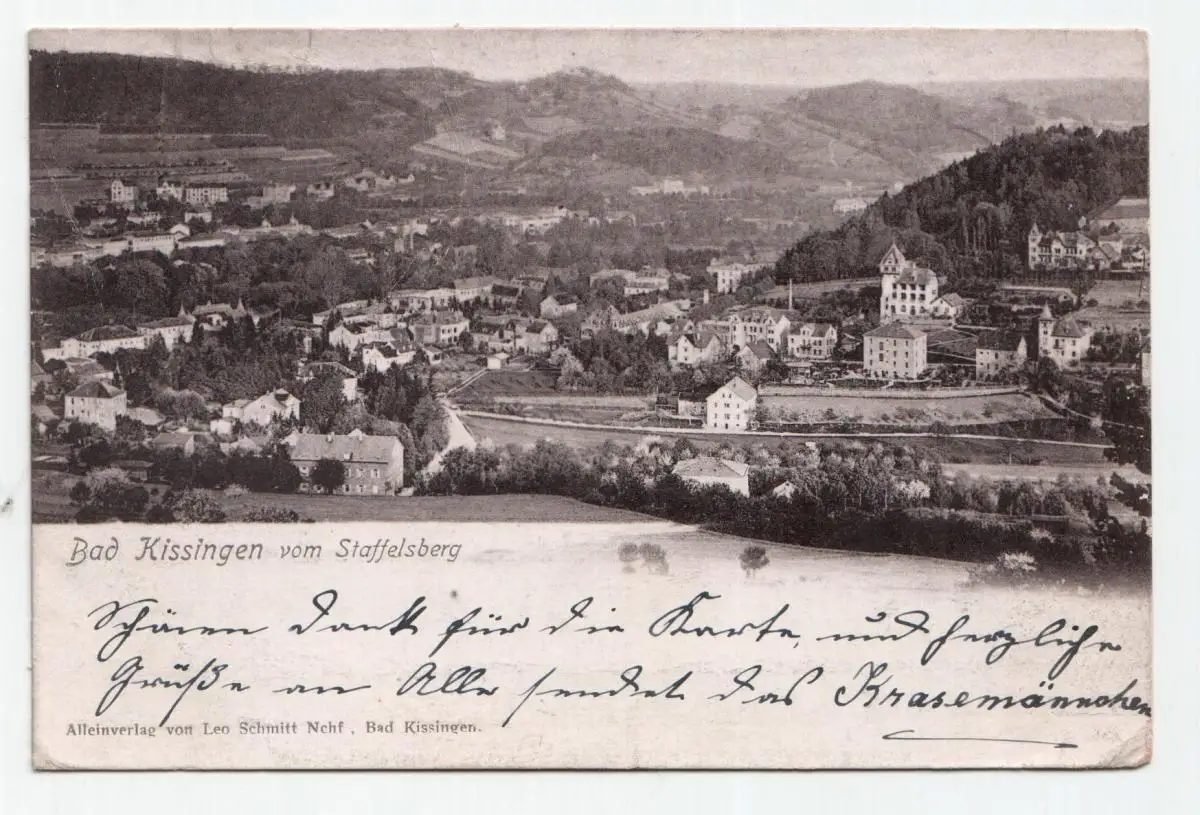 Bad Kissingen vom Staffelsberg
Schönen Dank für die Karte, und herzliche
Grüße an Alle sendet das Krasemännchen
Alleinverlag von Leo Schmitt Nchf., Bad Kissingen.